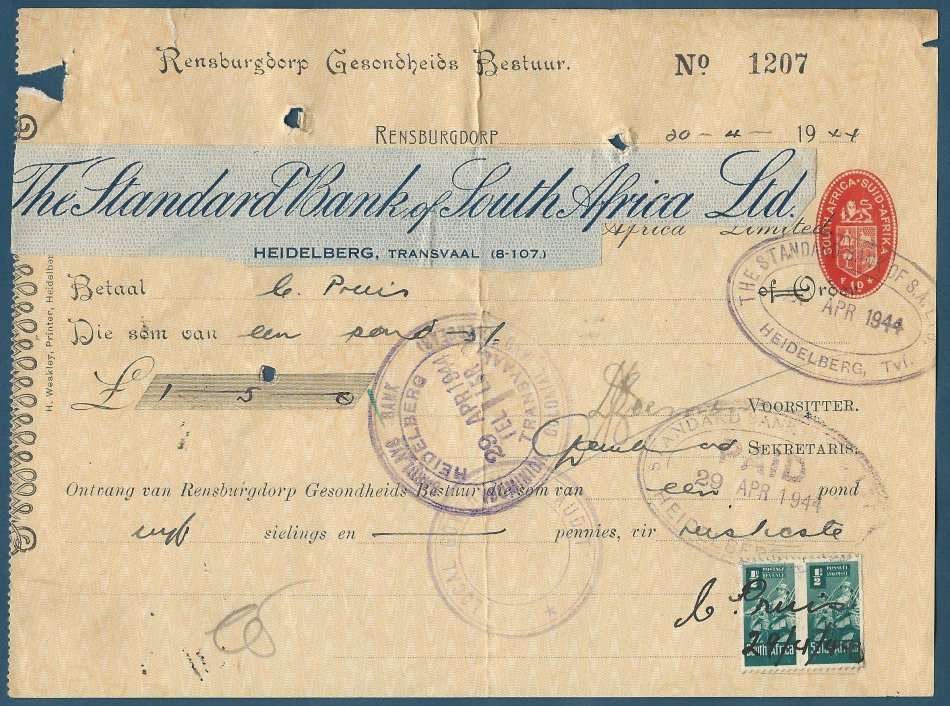 Rensburgdorp Gesondheids Bestuur. No 1207
RENSBURGDORP 20-4- 1944
The Standard Bank of South Africa Ltd.
Africa Limited
HEIDELBERG, TRANSVAAL (8-107.)
SOUTH AFRICA · SUID-AFRIKA
1D
THE STANDARD OF S.A.
APR 1944
HEIDELBERG, Tvl.
Betaal C. Pruis of Order
Die som van een pond 5/
£ 1 5 0
H. Weakley, Printer, Heidelber
BANK
HEIDELBERG
29 APR 1944
TRANSVAAL
VOORSITTER.
SEKRETARIS.
STANDARD BANK
PAID
29 APR 1944
Ontvang van Rensburgdorp Gesondheids Bestuur die som van een pond
vyf sielings en — pennies, vir reiskoste
LOCAL AUDIT
C. Pruis
28/4/44
POSTAGE REVENUE
½D
South Africa
POSSEËL INKOMSTE
½D
Suid-Afrika